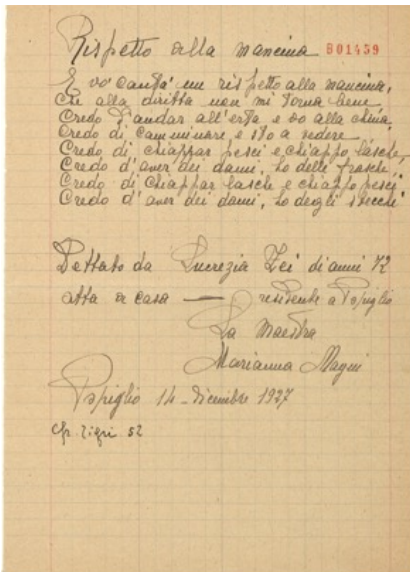 Rispetto alla mancina B01459
E vo' cantà' un rispetto alla mancina,
Chè alla diritta non mi torna bene
Credo d'andar all'erta e vo alla china,
Credo di camminare e sto a vedere,
Credo di chiappar pesci e chiappo lasche,
Credo d'aver dei dami, ho delle frasche,
Credo di chiappar lasche e chiappo pesci
Credo d'aver dei dami, ho degli stecchi
Dettato da Lucrezia Zei di anni 72
atta a casa — residente a Popiglio
La Maestra
Marianna Magni
Popiglio 14 - Dicembre 1927
Cfr. Tigri 52